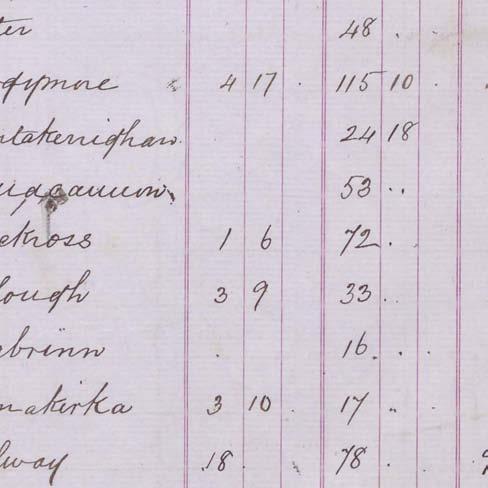 ter 48 . .
dymore 4 17 . 115 10 .
takenighan . 24 18
53 . .
ckross 1 6 72 .
lough 3 9 33 . .
brinn . 16 . . .
makirka 3 10 . 17 "
lway 18 . 78 . .